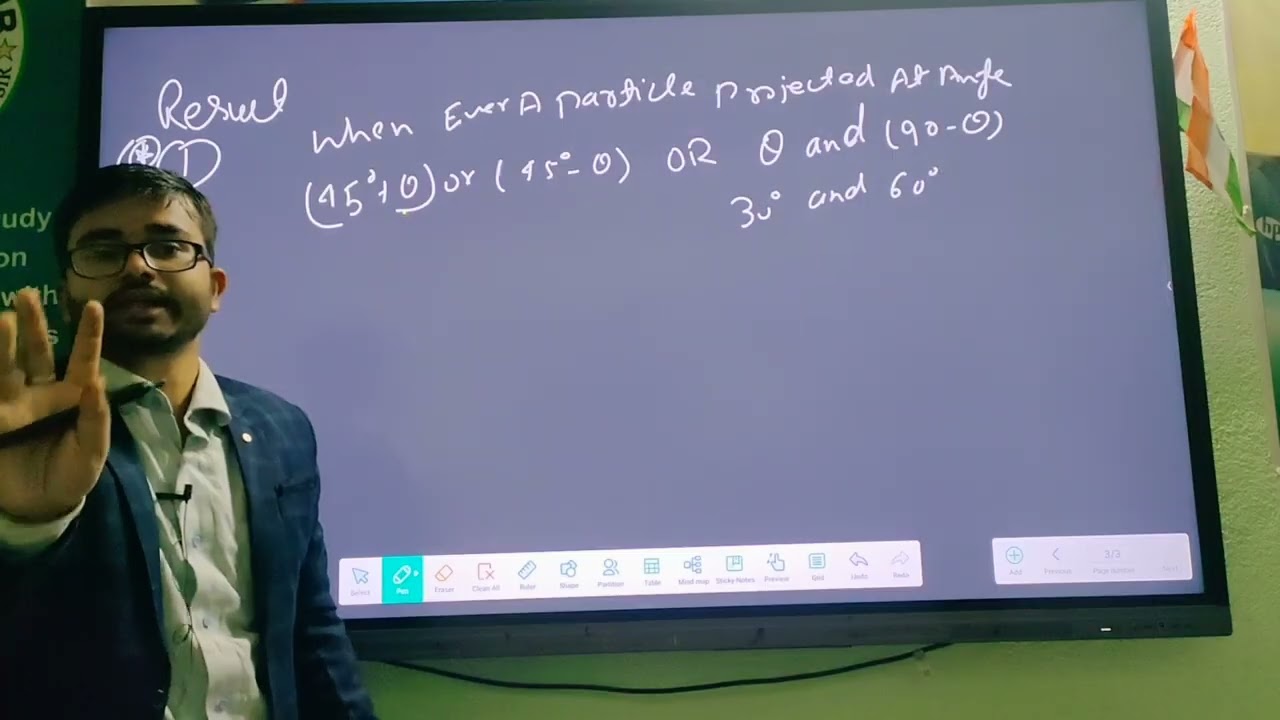 Result
(*) (1)
When Ever A particle projected At Angle
(45°+θ) or (45°-θ) OR θ and (90-θ)
30° and 60°
udy
on
with
s
hp
Select Pen Eraser Clean All Ruler Shape Partition Table Mind map Sticky Notes Preview Grid Undo Redo
Add Previous 3/3 Page number Next